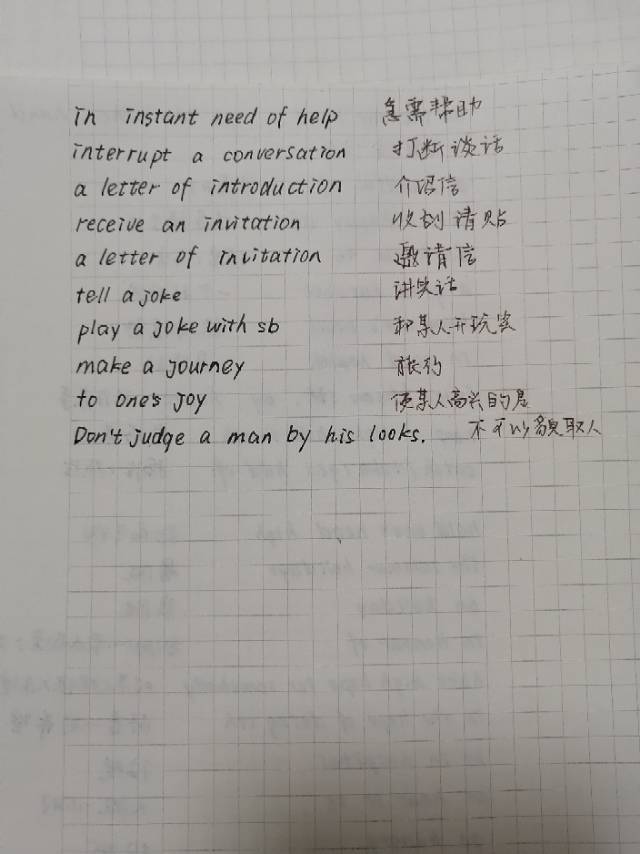 in instant need of help 急需帮助
interrupt a conversation 打断谈话
a letter of introduction 介绍信
receive an invitation 收到请贴
a letter of invitation 邀请信
tell a joke 讲笑话
play a joke with sb 和某人开玩笑
make a journey 旅行
to one's joy 使某人高兴的是
Don't judge a man by his looks. 不可以貌取人